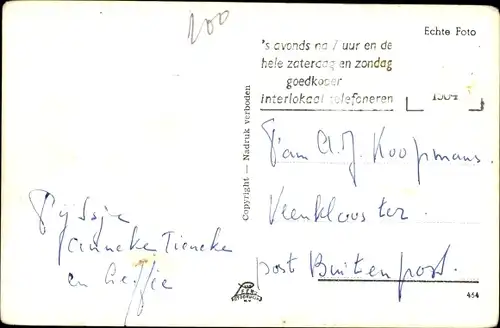 200
Echte Foto
's avonds na 7 uur en de
hele zaterdag en zondag
goedkoper
interlokaal telefoneren
1964
Copyright — Nadruk verboden
Fam A.J. Koopmans.
Veenklooster.
post Buitenpost.
Janneke Tieneke
en
464